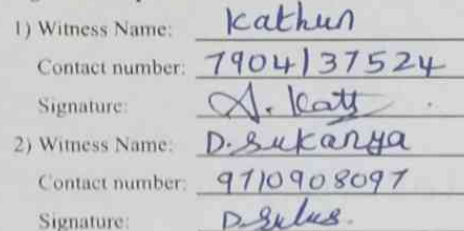 1) Witness Name: Kathun
Contact number: 7904137524
Signature: A. Kat
2) Witness Name: D. Sukanya
Contact number: 9710908097
Signature: D. Sukus.